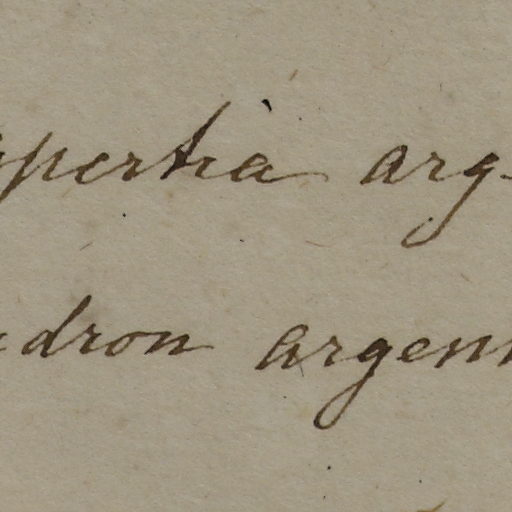 pertia arg
dron argen